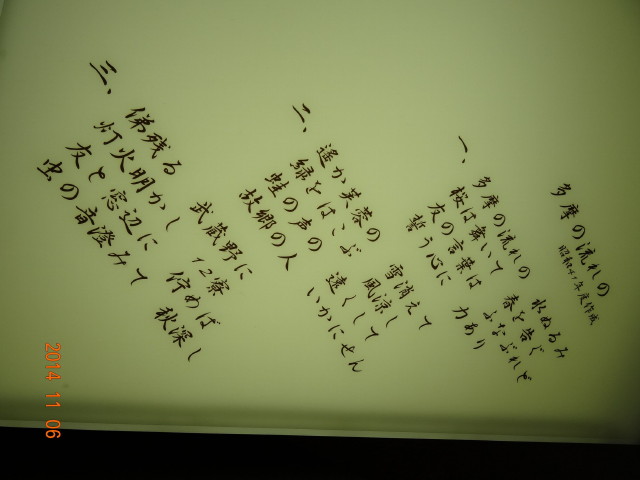 多摩の流れの
昭和41年度作成
一、
多摩の流れの 水ぬるみ
桜は舞いて 春を告ぐ
友の言葉は ぶなぶれど
誓う心に 力あり
二、
遥か芙蓉の 雪消えて
緑をはこぶ 風涼し
蛙の声の 遠くして
故郷の人 いかにせん
三、
俤残る 武蔵野に
灯火明かし 12寮
友と窓辺に 佇めば
虫の音澄みて 秋深し
2014 11 06